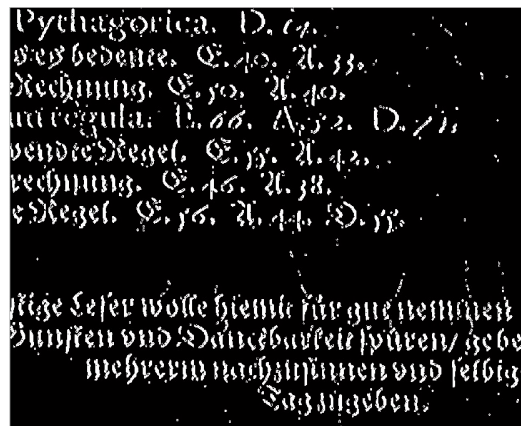 Pythagorica. D. 14.
bedeute. E. 40. A. 33.
Rechnung. E. 50. A. 40.
regula. E. 66. A. 52. D.
Regel. E. 55. A. 42.
rechnung. E. 46. A. 38.
Regel. E. 56. A. 44. D. 55.
Leser wolle hiemit für gut nemmen
Gunsten vnd Danckbarkeit spüren/ gebe
mehrerm nachzusinnen vnd selbig
Tag zugeben.